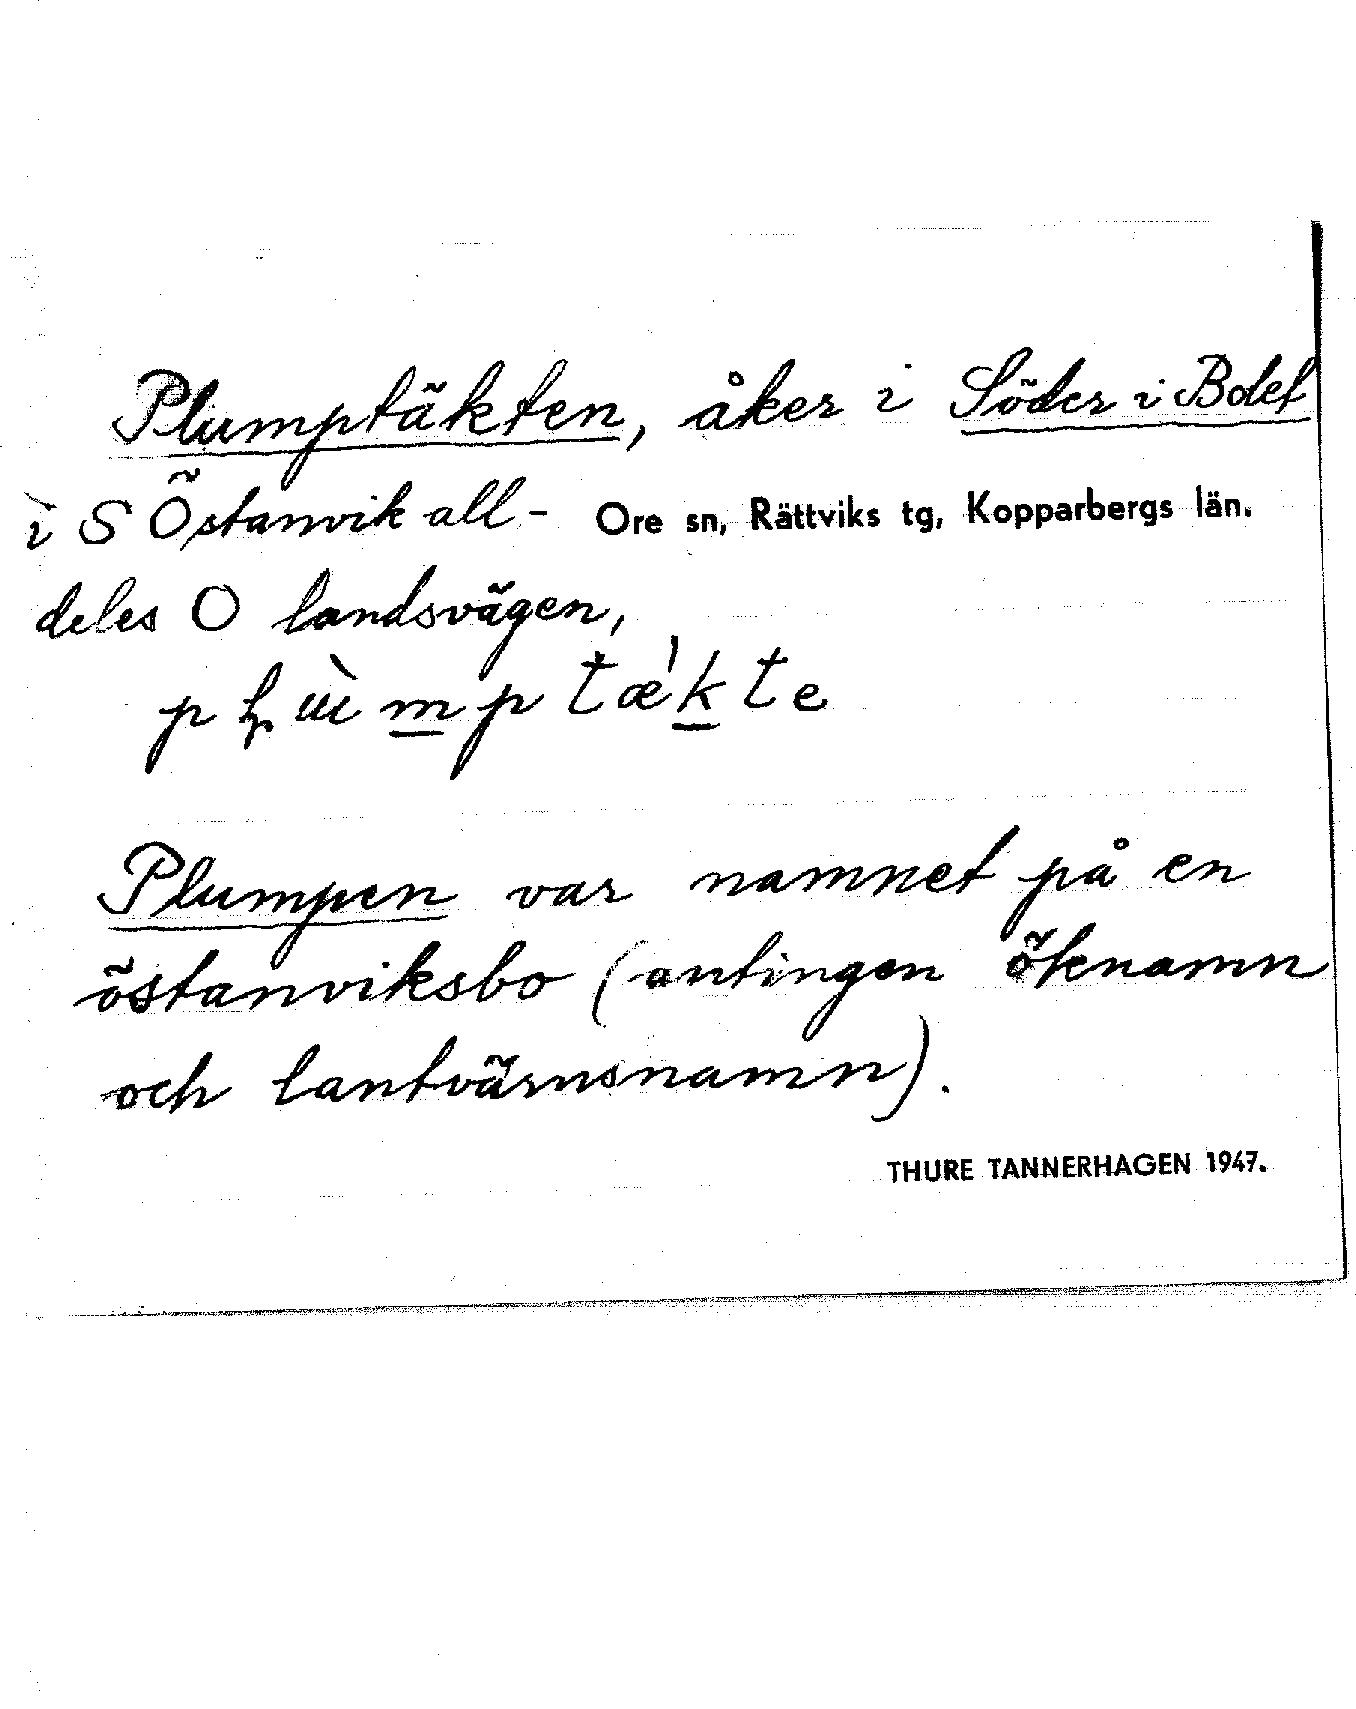 Plumptäkten, åker i Söder i Bdet
i S Östanvik all- Ore sn, Rättviks tg, Kopparbergs län.
deles O landsvägen,
Plumpen var namnet på en
östanviksbo (antingen öknamn
och lantvärnsnamn).
THURE TANNERHAGEN 1947.